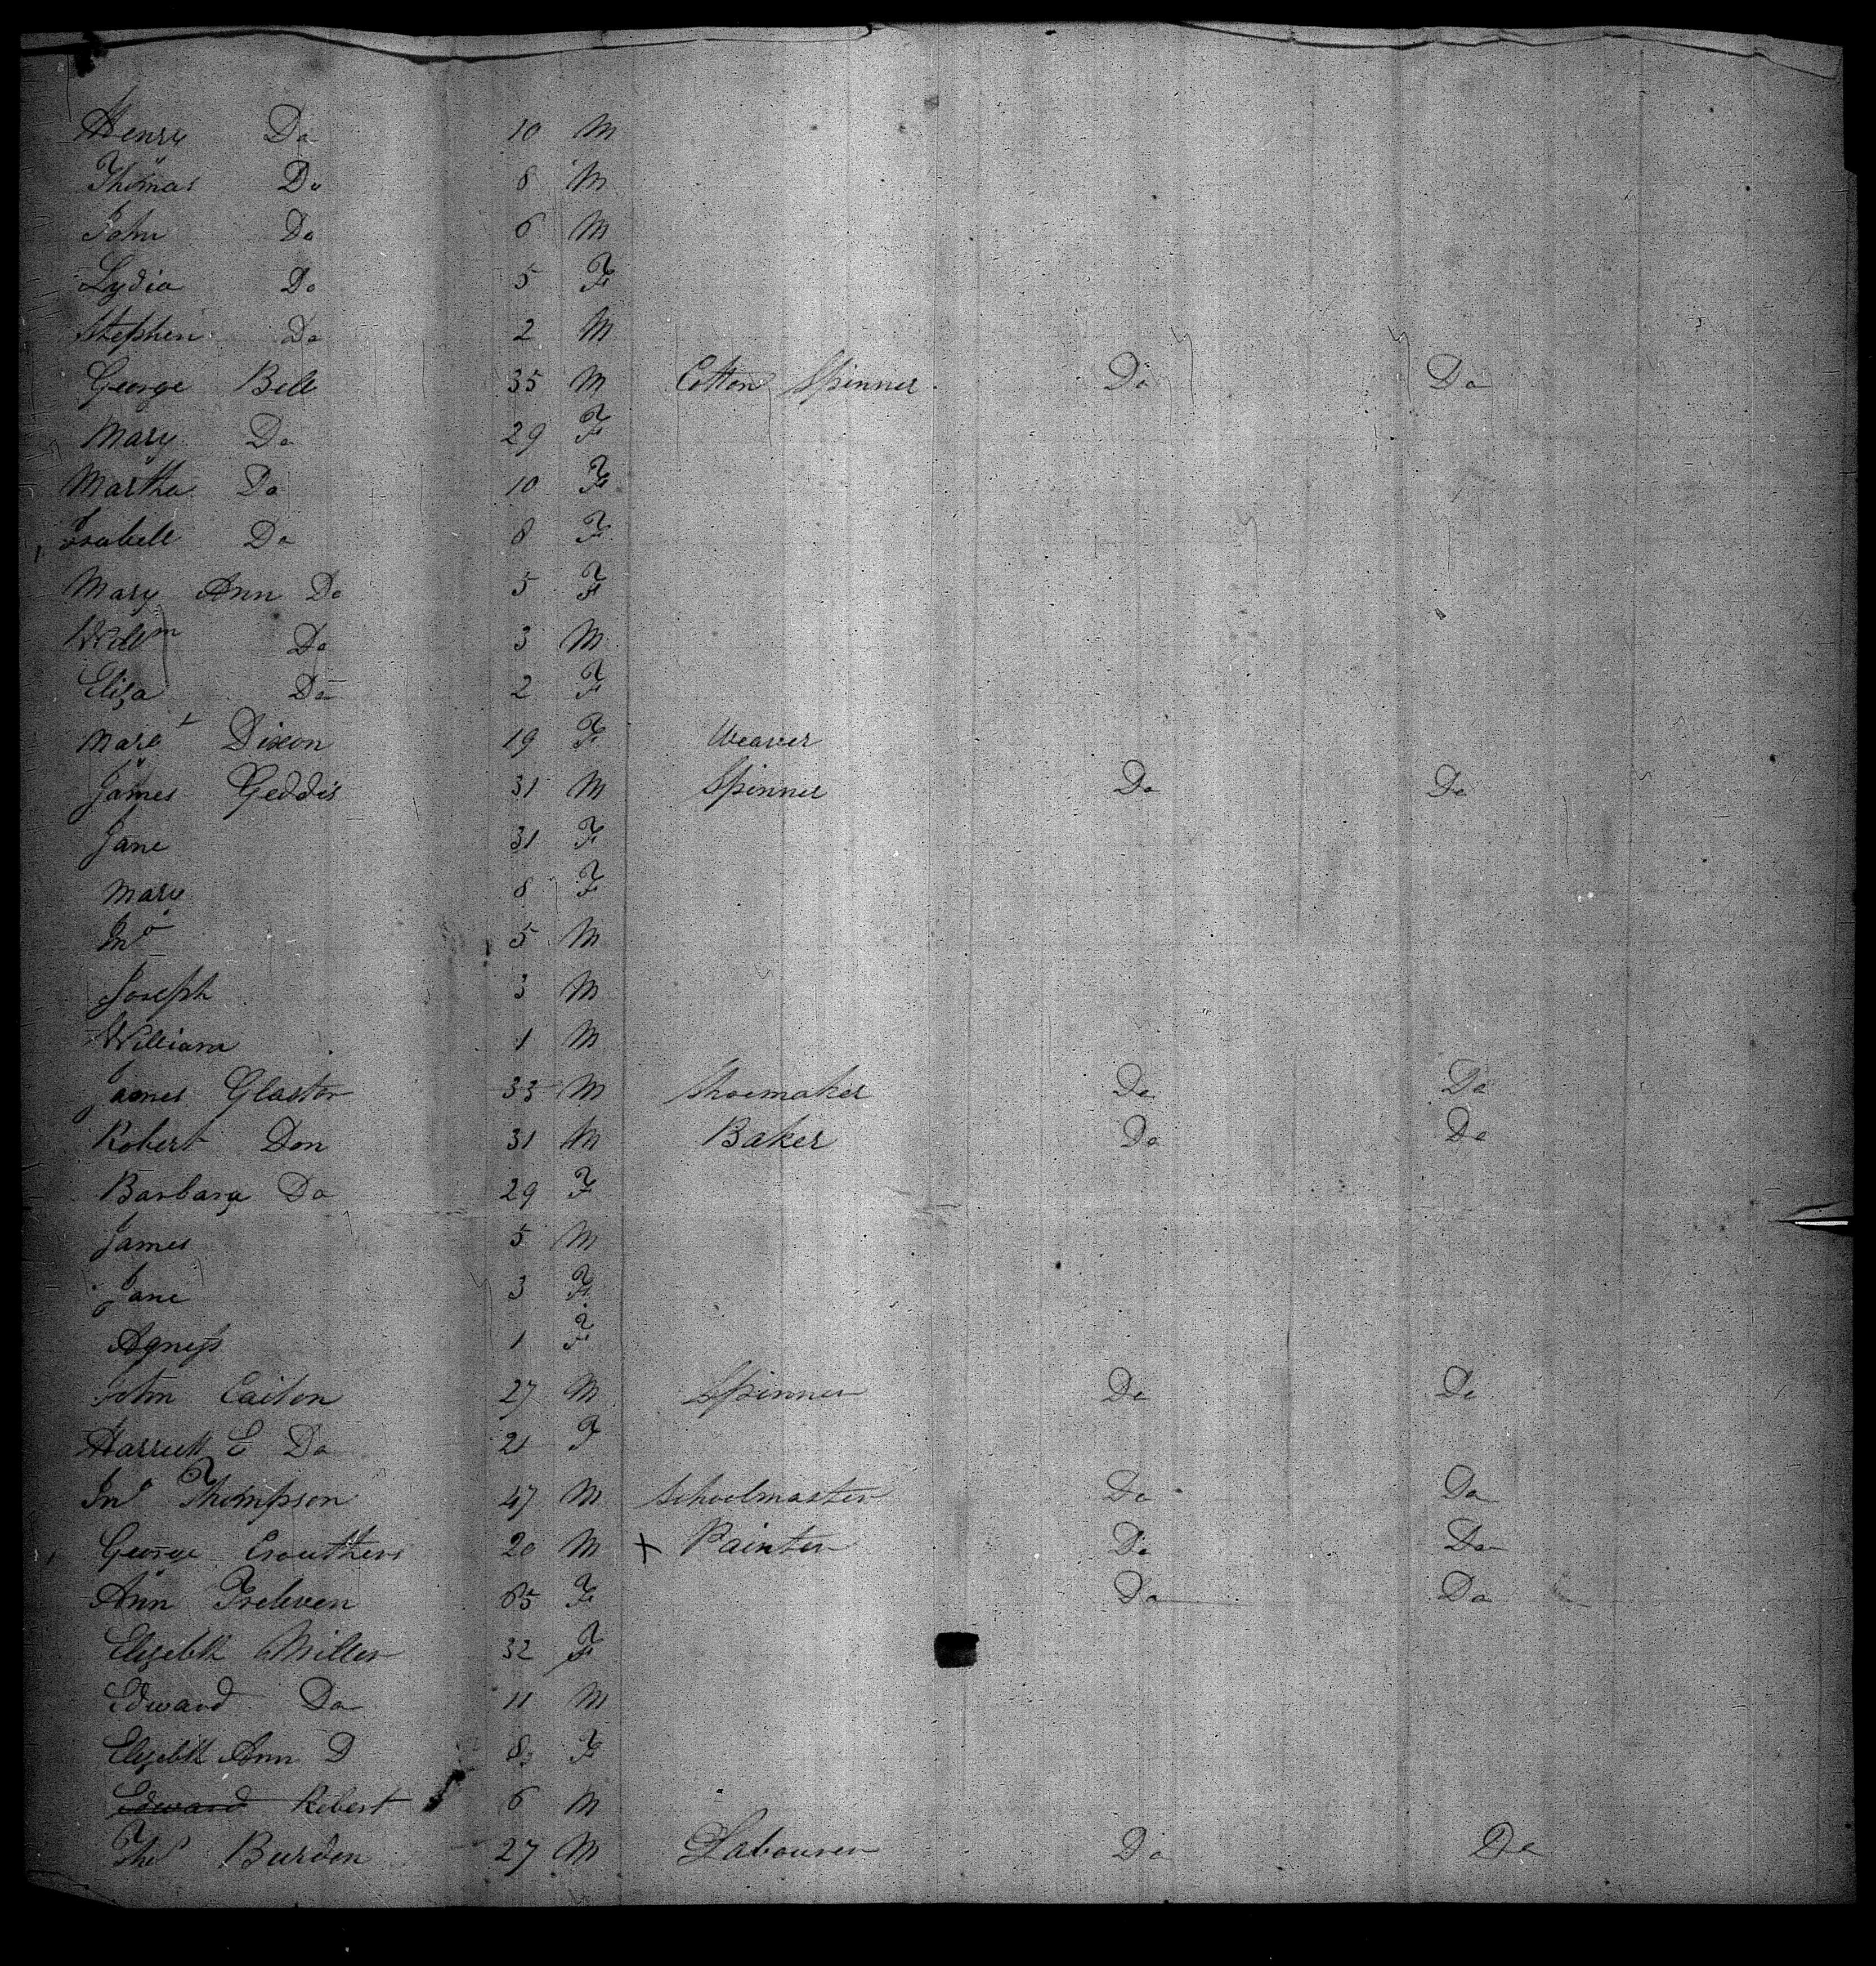 Henry Do 10 M
Thomas Do 8 M
John Do 6 M
Lydia Do 5 F
Stephen Do 2 M
George Bell 35 M Cotton Spinner Do Do
Mary Do 29 F
Martha Do 10 F
Isabell Do 8 F
Mary Ann Do 5 F
Willm Do 3 M
Eliza Do 2 F
Margt Dixon 19 F Weaver
James Geddis 31 M Spinner Do Do
Jane 31 F
Mary 8 F
Jno 5 M
Joseph 3 M
William 1 M
James Glaston 33 M Shoemaker Do Do
Robert Don 31 M Baker Do Do
Barbara Do 29 F
James 5 M
Jane 3 F
Agness 1 F
John 27 M Spinner Do Do
Harriett E Do 21 F
Jno Thompson 47 M Schoolmaster Do Do
George Crouthers 20 M x Painter Do Do
Ann 65 F Do Do
Elizebth Miller 32 F
Edward Do 11 M
Elizebth Ann D 8 F
Edward Robert 6 M
Thos Burden 27 M Labourer Do Do